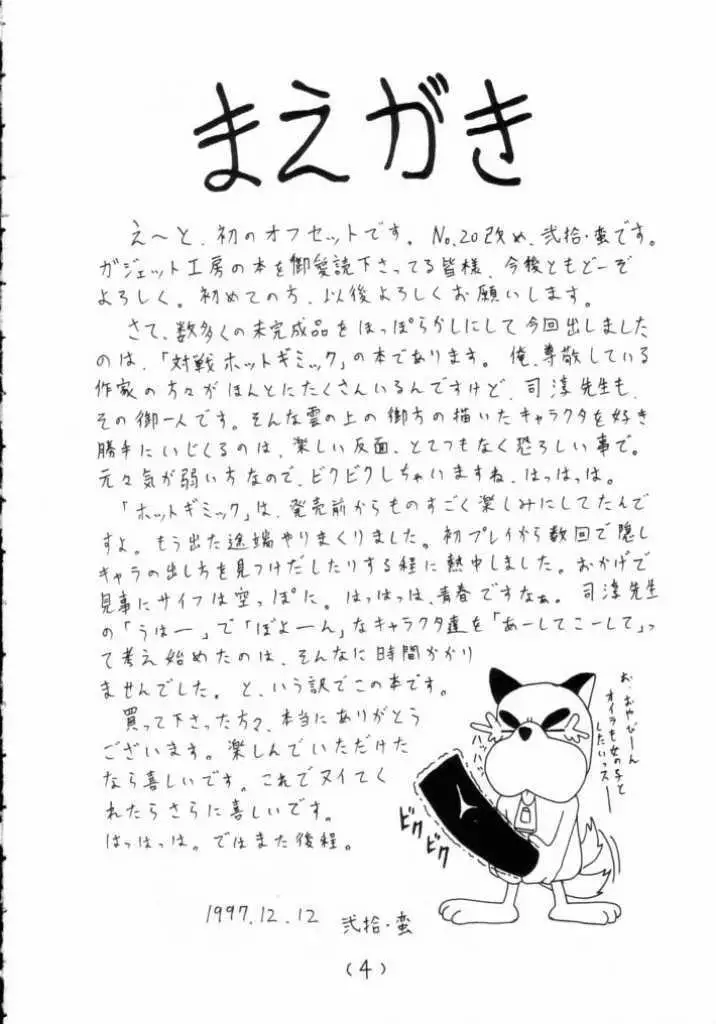 まえがき
え〜と、初のオフセットです。No.20改め、弐拾・蛮です。
ガジェット工房の本を御愛読下さってる皆様、今後ともどーぞ
よろしく。初めての方、以後よろしくお願いします。
さて、数多くの未完成品をほっぽらかしにして今回出しました
のは、「対戦ホットギミック」の本であります。俺、尊敬している
作家の方々がほんとにたくさんいるんですけど、司淳先生も、
その御一人です。そんな雲の上の御方の描いたキャラクタを好き
勝手にいじくるのは、楽しい反面、とてつもなく恐ろしい事で。
元々気が弱い方なので、ビクビクしちゃいますね、はっはっは。
「ホットギミック」は、発売前からものすごく楽しみにしてたんで
すよ。もう出た途端やりまくりました。初プレイから数回で隠し
キャラの出し方を見つけだしたりする程に熱中しました。おかげで
見事にサイフは空っぽに。はっはっは、青春ですなぁ。司淳先生
の「うはー」で「ぼよーん」なキャラクタ達を「あーしてこーして」っ
て考え始めたのは、そんなに時間かかり
ませんでした。と、いう訳でこの本です。
買って下さった方々、本当にありがとう
ございます。楽しんでいただけた
なら喜しいです。これでヌイてく
れたらさらに喜しいです。
はっはっは。ではまた後程。
1997.12.12 弐拾・蛮
お、おやびーん
オイラも女の子と
したいっスー
ハッハッ
ビク
ビク
(4)